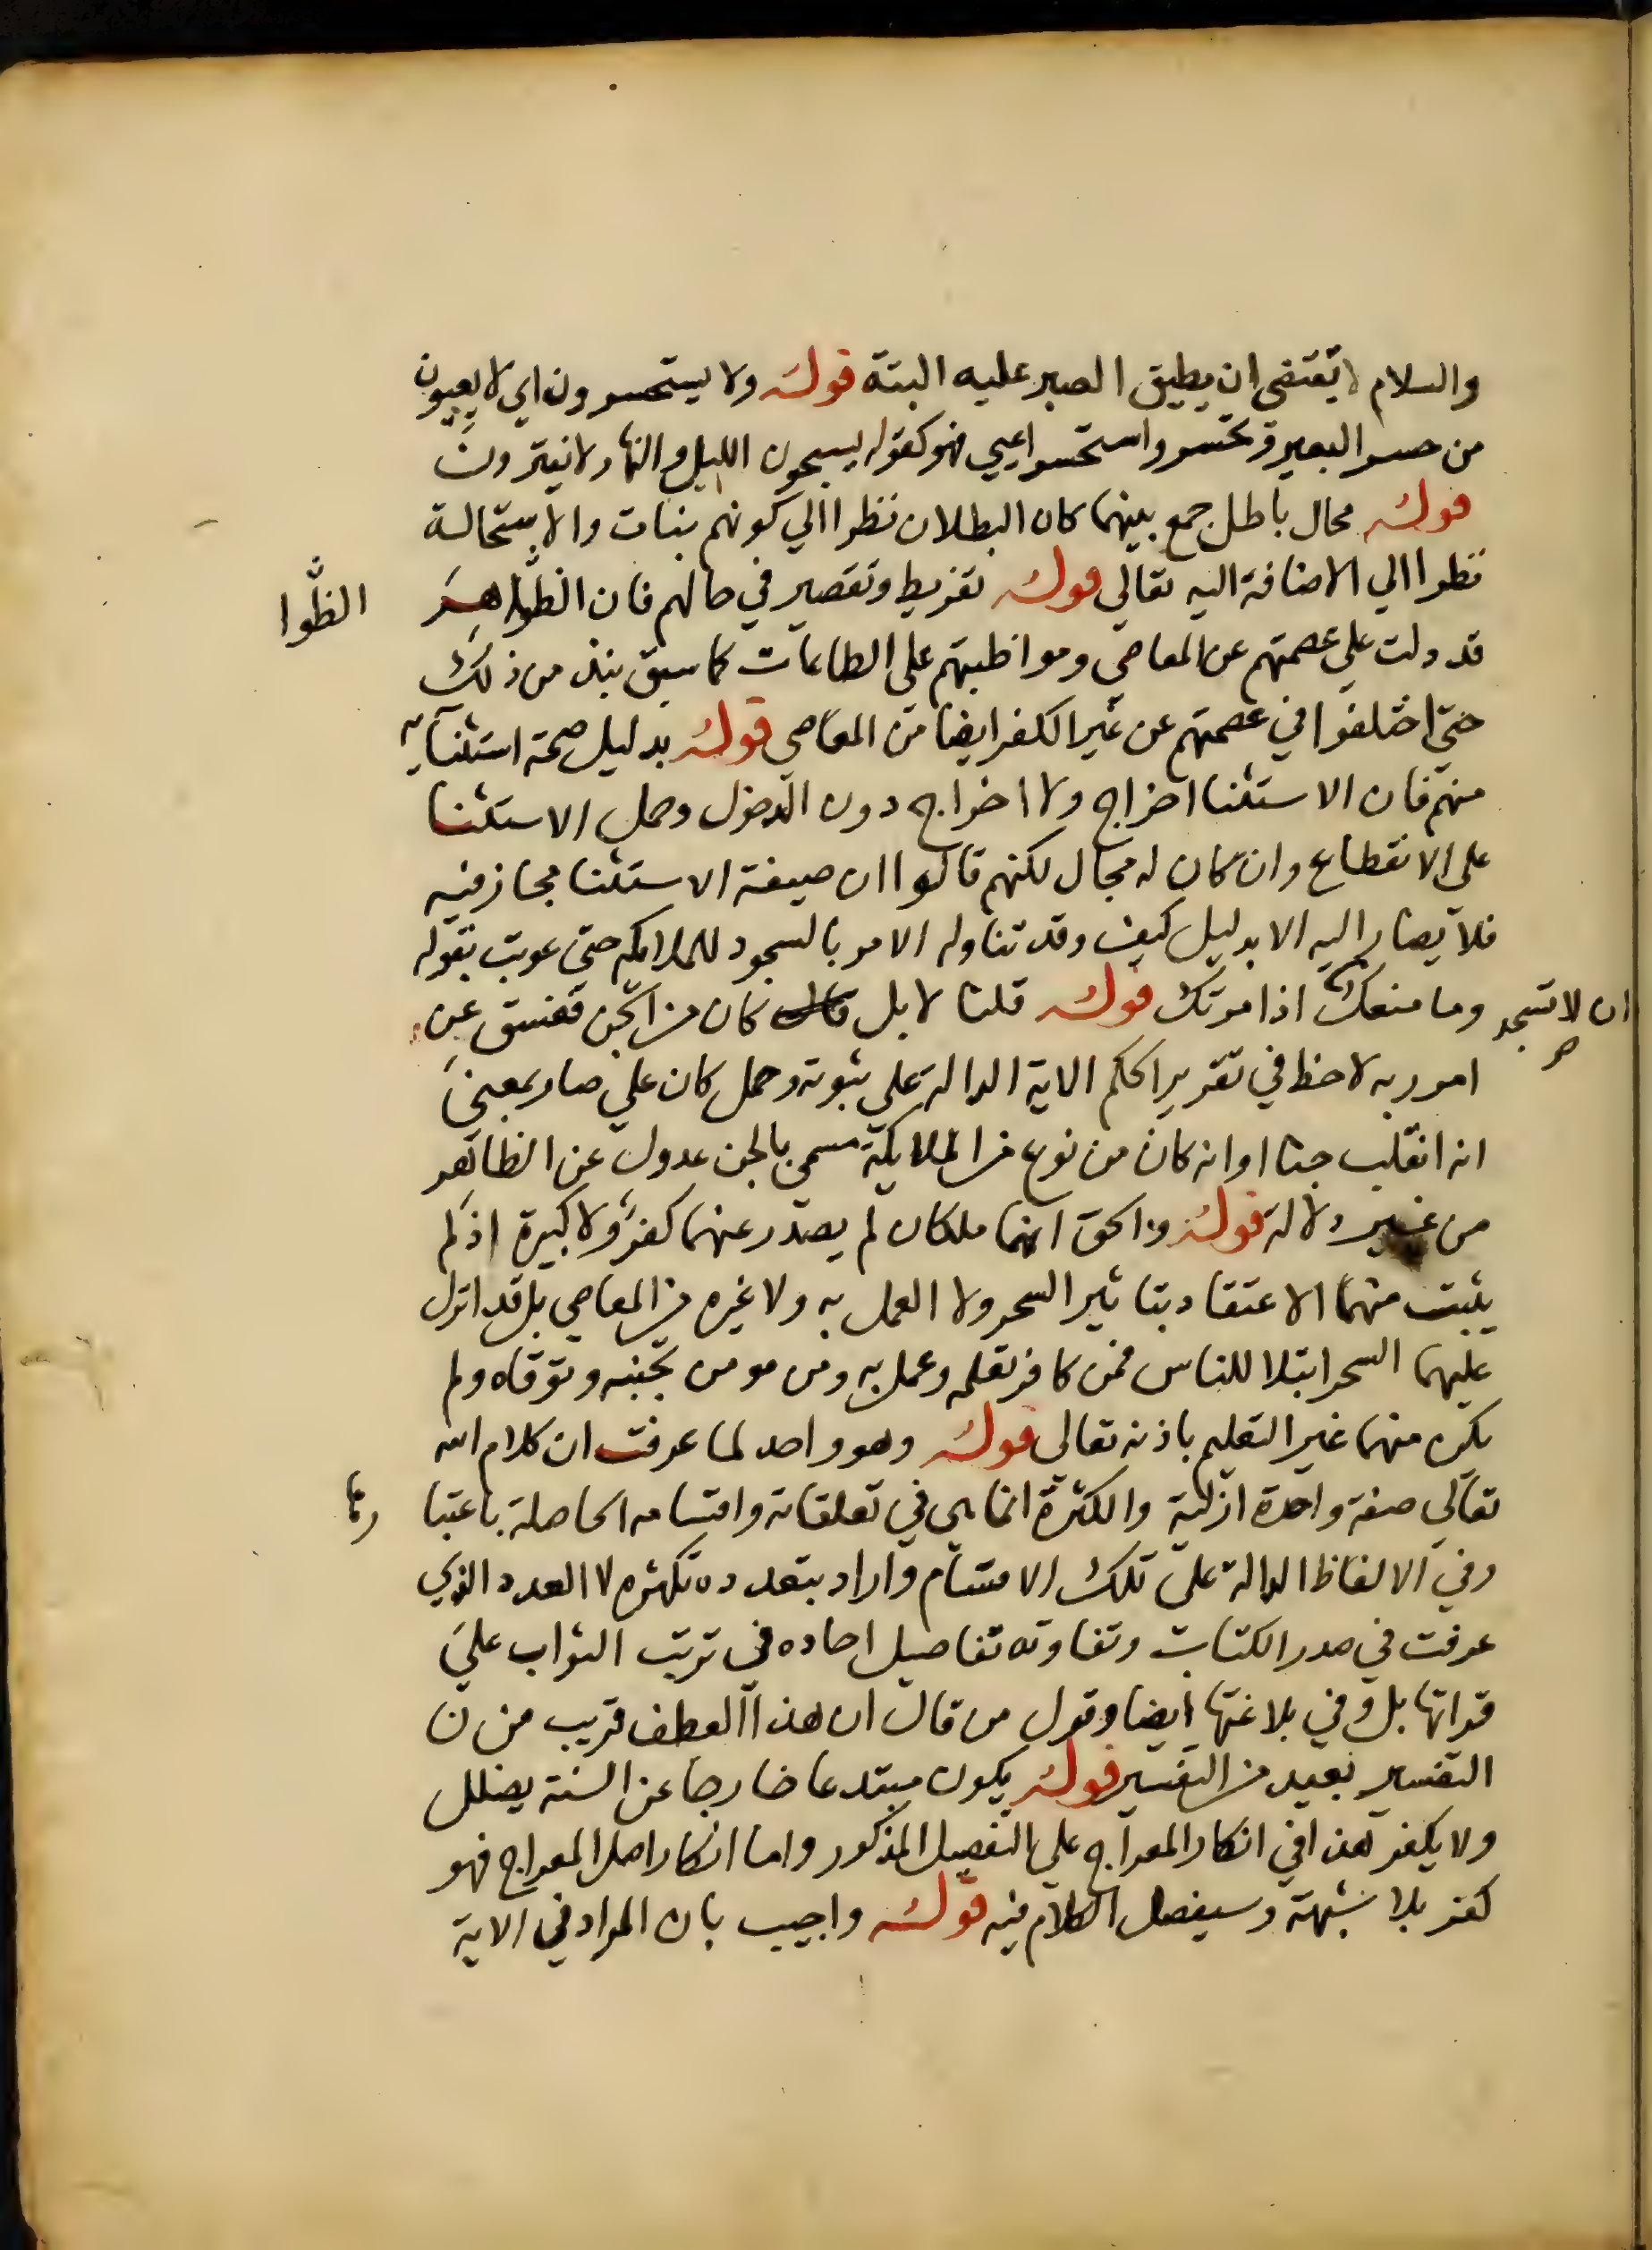 والسلام لا تقتضى ان يطيق الصبر عليه البتة قوله ولا يستحسرون اي لا يعيون
من حسر البعير وتحسر واستحسر اعيي فهو كقوله يسبحون الليل والنهار لا يفترون
قوله محال باطل جمع بينهما كان البطلان نظرا الي كونهم بنات والاستحالة
نظرا الي الاضافة اليه تعالى قوله تفريط وتقصير في حالهم فان الظواهر
الظوا
قد دلت علي عصمتهم عن المعاصي ومواظبتهم على الطاعات كما سبق نبذ من ذلك
حتي اختلفوا في عصمتهم عن غير الكفر ايضا من المعاصي قوله بدليل صحة استثنايه
منهم فان الاستثنا اخراج ولا اخراج دون الدخول وحمل الاستثنا
على الانقطاع وان كان له مجال لكنهم قالوا ان صيغة الاستثنا مجاز فيه
فلا يصار اليه الا بدليل كيف وقد تناوله الامر بالسجود للملايكه حتى عوتب بقوله
وما منعك اذ امرتك قوله قلنا لا بل كان من الجن ففسق عن
ان لا تسجد
امر ربه لاحظ في تقرير الحكم الاية الدالة علي ثبوته وحمل كان علي صار بمعنى
انه انقلب جنا او انه كان من نوع من الملايكة مسمي بالجن عدول عن الظاهر
من غير دلالة قوله والحق انهما ملكان لم يصدر عنهما كفر ولا كبيرة اذ لم
يثبت منهما الاعتقاد بتاثير السحر ولا العمل به ولا غيره من المعاصي بل قد انزل
عليهما السحر ابتلا للناس فمن كافر تعلمه وعمل به ومن مومن تجنبه وتوقاه ولم
يكن منهما غير التعليم باذنه تعالى قوله وهو واحد لما عرفت ان كلام الله
تعالي صفة واحدة ازلية والكثرة انما هي في تعلقاته واقسامه الحاصلة باعتبا
رها
وفي الالفاظ الدالة علي تلك الاقسام واراد بتعدده تكثره لا العدد الذي
عرفت في صدر الكتاب وتفاوته تفاصيل احاده في ترتب الثواب علي
قراتها بل وفي بلاغتها ايضا وقول من قال ان هذا العطف قريب من
التفسير بعيد من التفسير قوله يكون مبتدعا خارجا عن السنة يضلل
ولا يكفر هذا في انكار المعراج علي التفصيل المذكور واما انكار اصل المعراج فهو
كفر بلا شبهة وسيفصل الكلام فيه قوله واجيب بان المراد في الاية